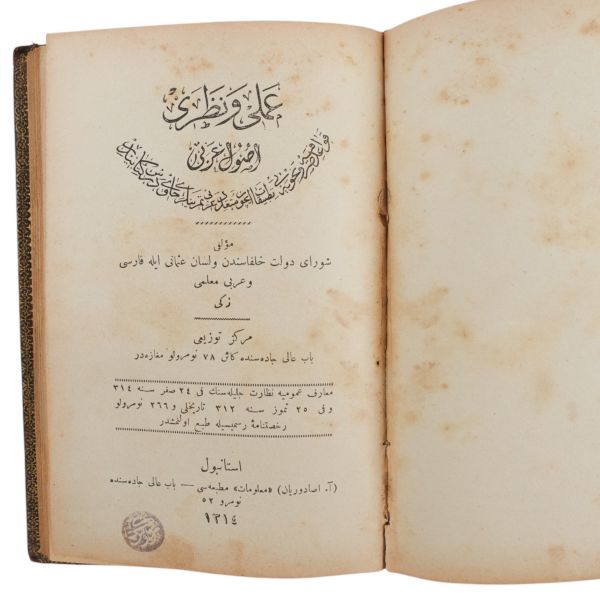 عملى ونظرى
اصول عربى
مؤلفى
شوراى دولت خلفاسندن ولسان عثمانى ايله فارسى
وعربى معلمى
زكى
مركز توزيعى
باب عالى جاده سنده كائن ٧٨ نومرولو مغازه در
معارف عموميه نظارت جليله سنك فى ٢٤ صفر سنه ٣١٤
وفى ٢٥ تموز سنه ٣١٢ تاريخلى و ٢٦٦ نومرولو
رخصتنامهٔ رسميسيله طبع اولنمشدر
استانبول
(آ. اصادوريان) «معلومات» مطبعه سى — باب عالى جاده سنده
نومرو ٥٢
١٣١٤